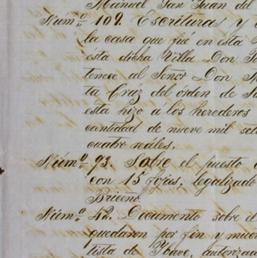 Manuel San Juan del
Núm.º 102. Escritura y
la casa que fué en esta
ésta dicha Villa Don
tenece al Señor Don
ta Cruz del órden de
esta hizo á los herederos
cantidad de nueve mil
cuatro reales.
Núm.º 73. Sobre el puesto
con 15 fojas, legalizado
Briceño
Núm.º 42. Documento sobre el
quedaron por fin y
tista de autorizado